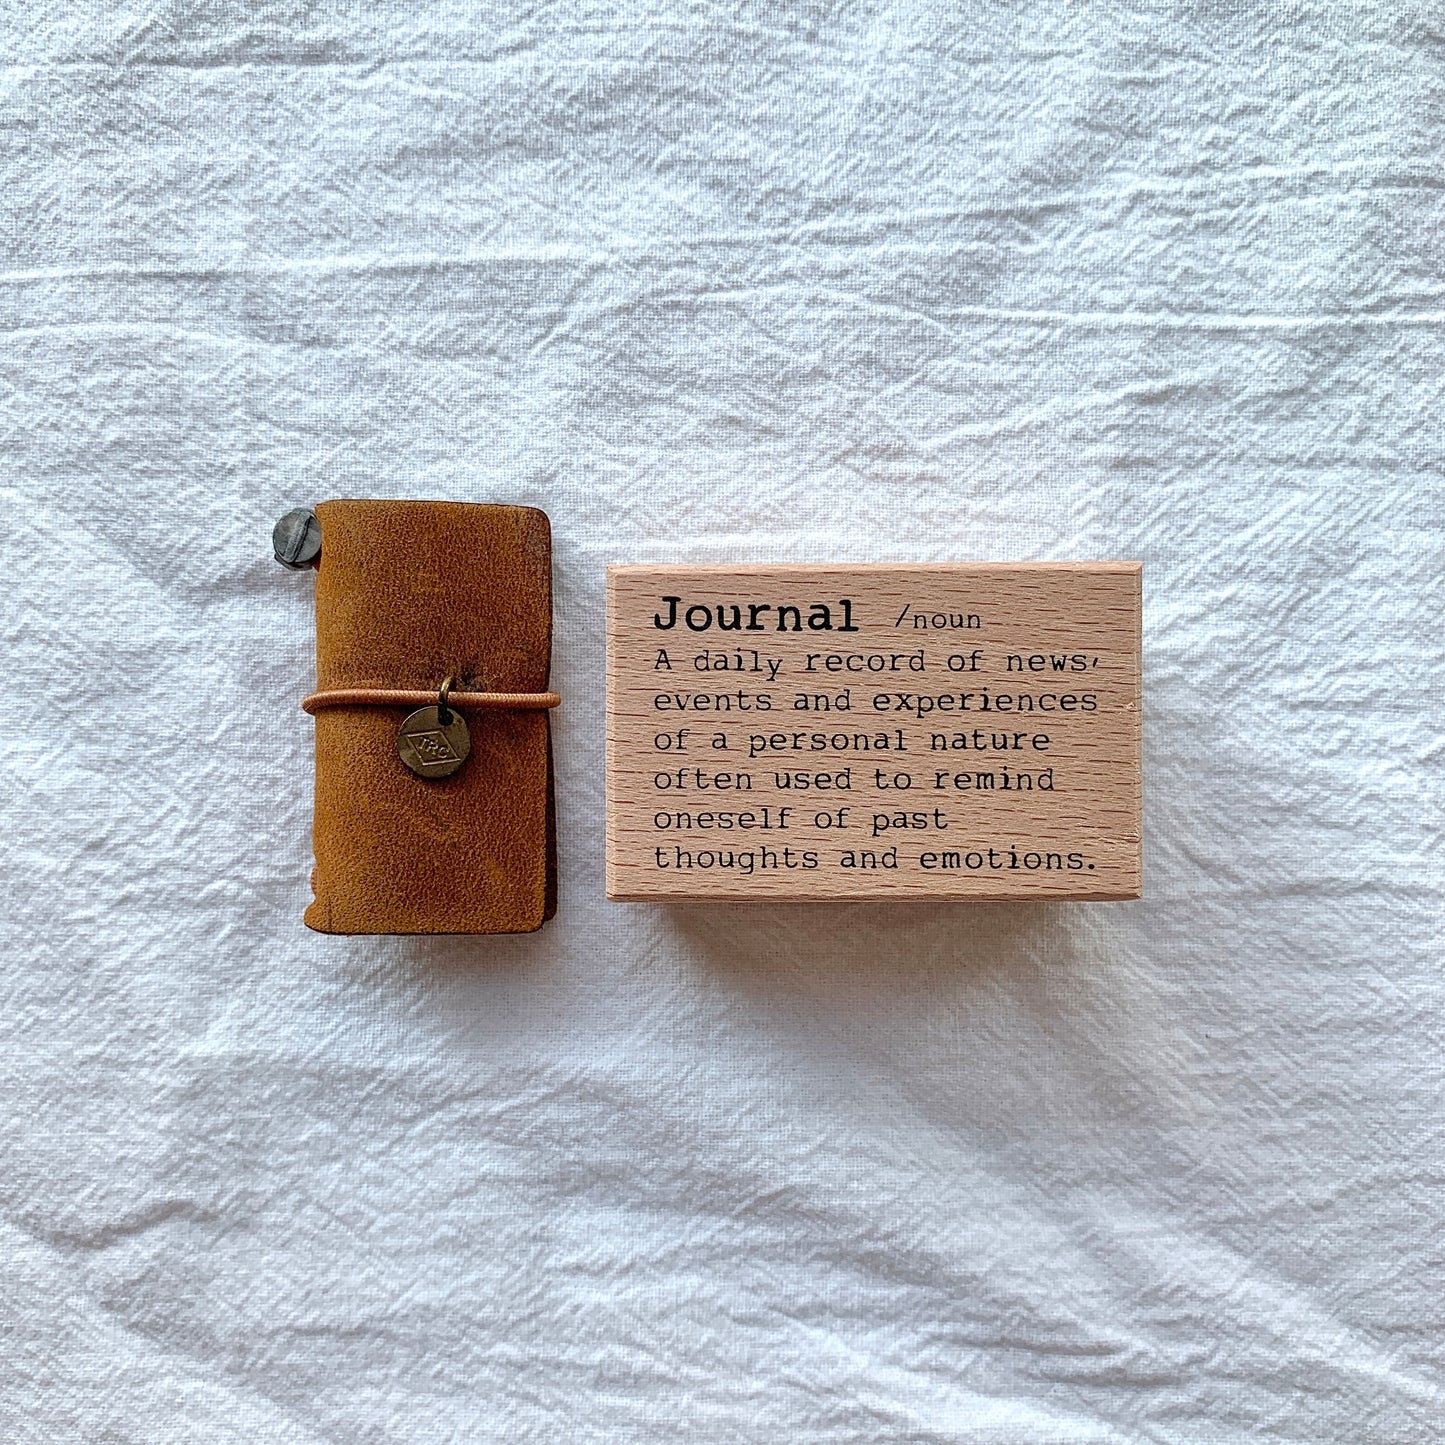 TRC
Journal /noun
A daily record of news,
events and experiences
of a personal nature
often used to remind
oneself of past
thoughts and emotions.